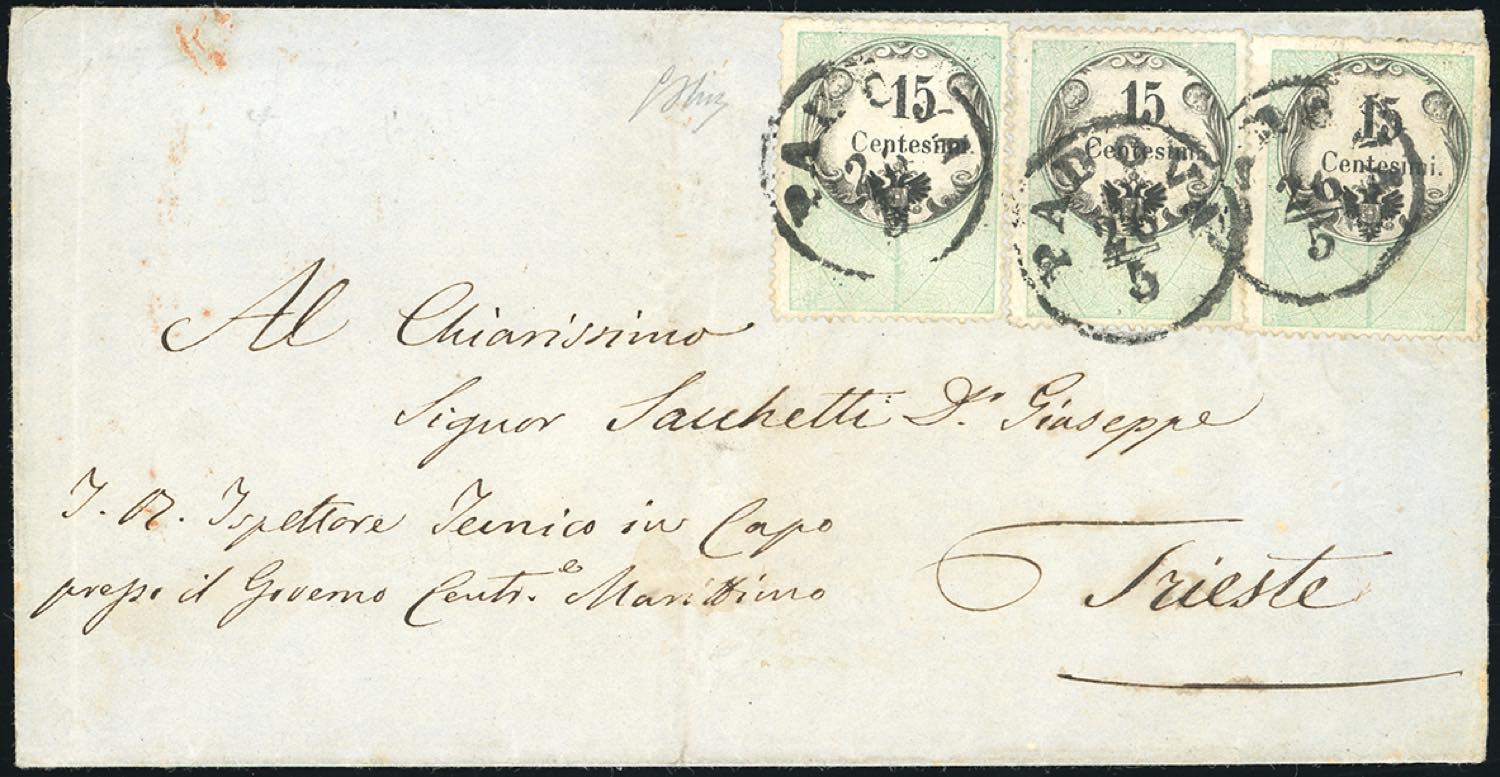 15
Centesimi.
15
Centesimi.
15
Centesimi.
PADOVA
26
5
PADOVA
26
5
26
5
Al Chiarissimo
Signor Sacchetti Dr. Giuseppe
I. R. Ispettore Tecnico in Capo
presso il Governo Centre. Marittimo
Trieste